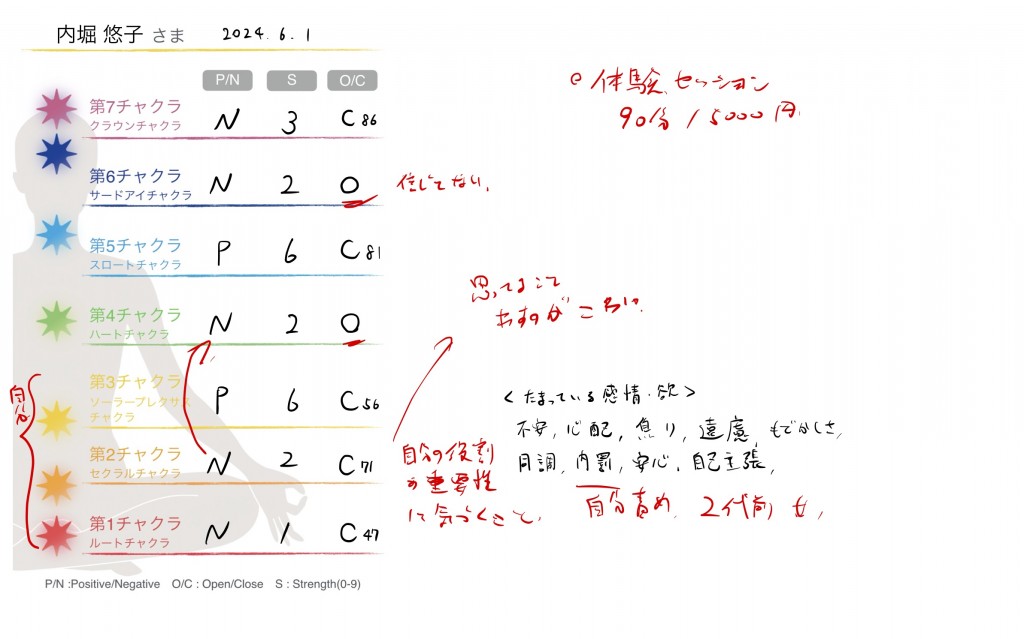 内堀 悠子 さま 2024. 6. 1
P/N S O/C
第7チャクラ
クラウンチャクラ
N 3 C 86
第6チャクラ
サードアイチャクラ
N 2 O
信じてない。
第5チャクラ
スロートチャクラ
P 6 C 81
第4チャクラ
ハートチャクラ
N 2 O
第3チャクラ
ソーラープレクサス
チャクラ
P 6 C 56
第2チャクラ
セクラルチャクラ
N 2 C 71
第1チャクラ
ルートチャクラ
N 1 C 47
自分
P/N :Positive/Negative O/C : Open/Close S : Strength(0-9)
体験セッション
90分 / 5000円
自分の役割
の重要性
に気づくこと、
<たまっている感情・欲>
不安, 心配, 焦り, 遠慮, もどかしさ,
同調, 内罰, 安心, 自己主張,
自分責め、2代前 女,